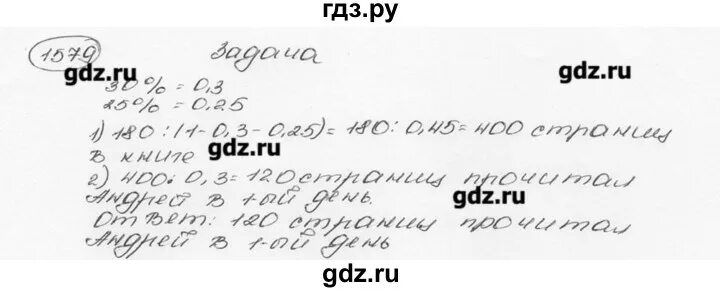 гдз.ру
1579 Задача
gdz.ru
30% = 0,3
gdz.ru
25% = 0,25
1) 180 : (1-0,3-0,25) = 180 : 0,45 = 400 страниц
в книге
gdz.ru
2) 400 · 0,3 = 120 страниц прочитал
Андрей в 1-ый день.
gdz.ru
Ответ: 120 страниц прочитал
Андрей в 1-ый день
gdz.ru